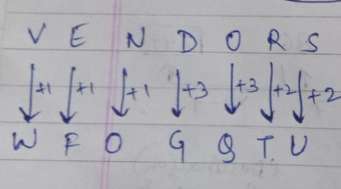 V E N D O R S
+1 +1 +1 +3 +3 +2 +2
W F O G Q T U